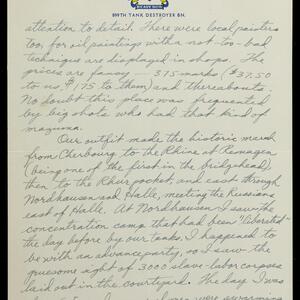 899TH TANK DESTROYER BN.
attention to detail. There were local painters
too, for oil paintings with a not-too-bad
technique are displayed in shops. The
prices are fancy — 375 marks ($37.50
to us, $175 to them) and thereabouts.
No doubt this place was frequented
by big shots who had that kind of
mazuma.
Our outfit made the historic march
from Cherbourg to the Rhine at Remagen
(being one of the first in the bridgehead),
then to the Ruhr pocket, and east through
Nordhausen and Halle, meeting the Russians
east of Halle. At Nordhausen I saw the
concentration camp that had been "liberated"
the day before by our tanks. I happened to
be with an advance party, so I saw the
gruesome sight of 3000 slave-labor corpses
laid out in the courtyard. The day I was
were swarming